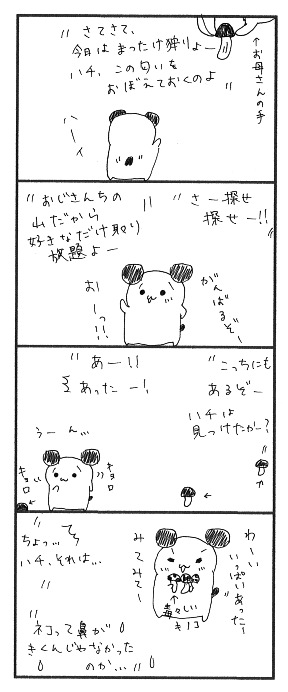 さてさて、
今日は まったけ狩りよー
ハチ、この匂いを
おぼえておくのよ
↑お母さんの手
ハーイ
さー探せ
探せー!!
おじさんちの
山だから
好きなだけ取り
放題よー
がんばるぞー
おーっっ!!
こっちにも
あるぞー
ハチは
見つけたかー?
あー!!
あったー!
うーん…
キョロ
キョロ
わーい
いっぱいあったー
みてみてー
↑毒々しい
キノコ
ちょっ…
ハチ、それは…
ネコって鼻が
きくんじゃなかった
のか…